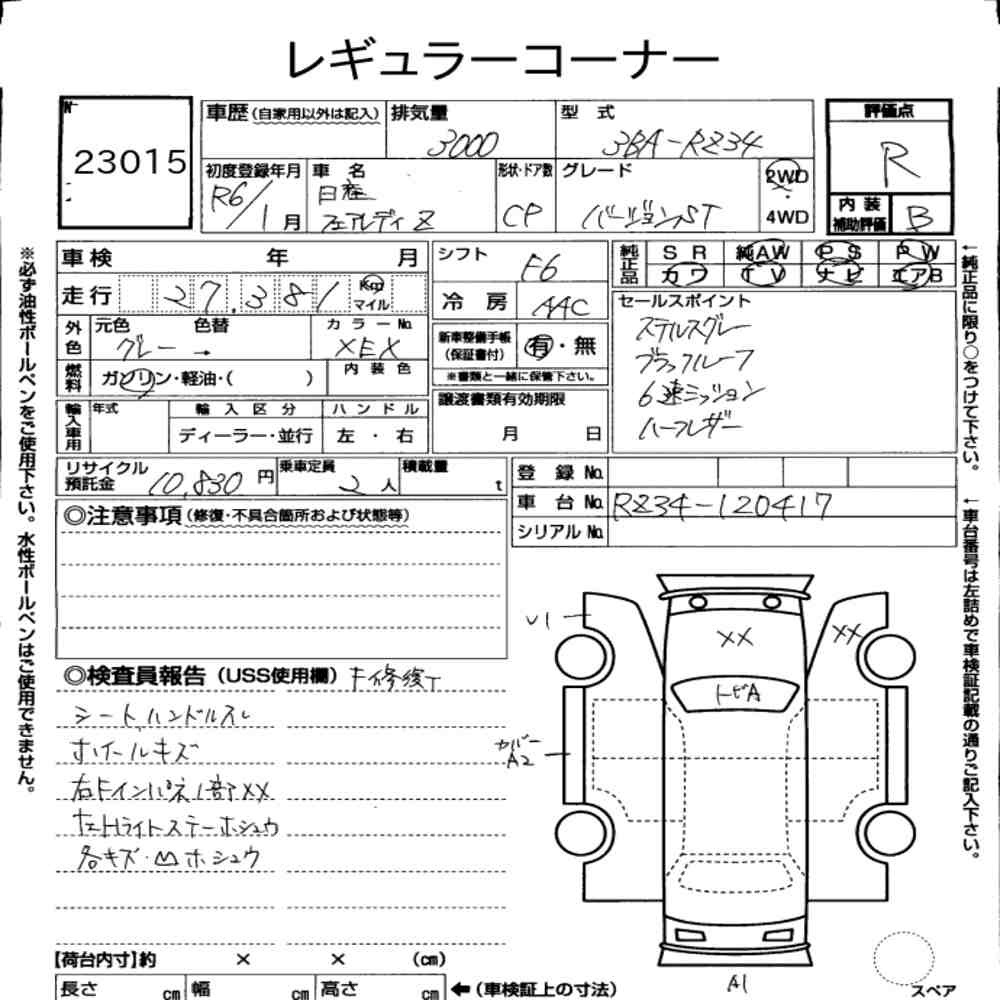 レギュラーコーナー
No
23015
車歴 (自家用以外は記入) 排気量 3000 型 式 3BA-RZ34
評価点 R
初度登録年月 R6/1月 車 名 日産 フェアレディZ 形状・ドア数 CP グレード バージョンST 2WD・4WD
内 装 補助評価 B
車検 年 月 シフト F6
純正品 SR 純AW PS PW
カワ TV ナビ エアB
走行 27,381 Km マイル 冷 房 AAC
セールスポイント
ステルスグレー
ブラックルーフ
6速ミッション
ハーフレザー
外色 元色 色替 カラーNo.
グレー → XEX
新車整備手帳 (保証書付) 有・無
※書類と一緒に保管下さい。
燃料 ガソリン・軽油・( ) 内装色
譲渡書類有効期限
月 日
輸入車用 年式 輸入区分 ハンドル
ディーラー・並行 左・右
リサイクル預託金 10,830円 乗車定員 2人 積載量 t
登 録 No.
車 台 No. RZ34-120417
シリアル No.
◎注意事項 (修復・不具合箇所および状態等)
◎検査員報告 (USS使用欄)
シートハンドルスレ
ホイールキズ
右Fインパネ1部XX
左Hライトステーホシュウ
各キズ・凹ホシュウ
U1
XX
XX
トビA
カバー
A2
A1
スペア
【荷台内寸】約 × × (cm)
長さ cm 幅 cm 高さ cm ←(車検証上の寸法)
※必ず油性ボールペンをご使用下さい。水性ボールペンはご使用できません。
←純正品に限り○をつけて下さい。
←車台番号は左詰めで車検証記載の通りご記入下さい。